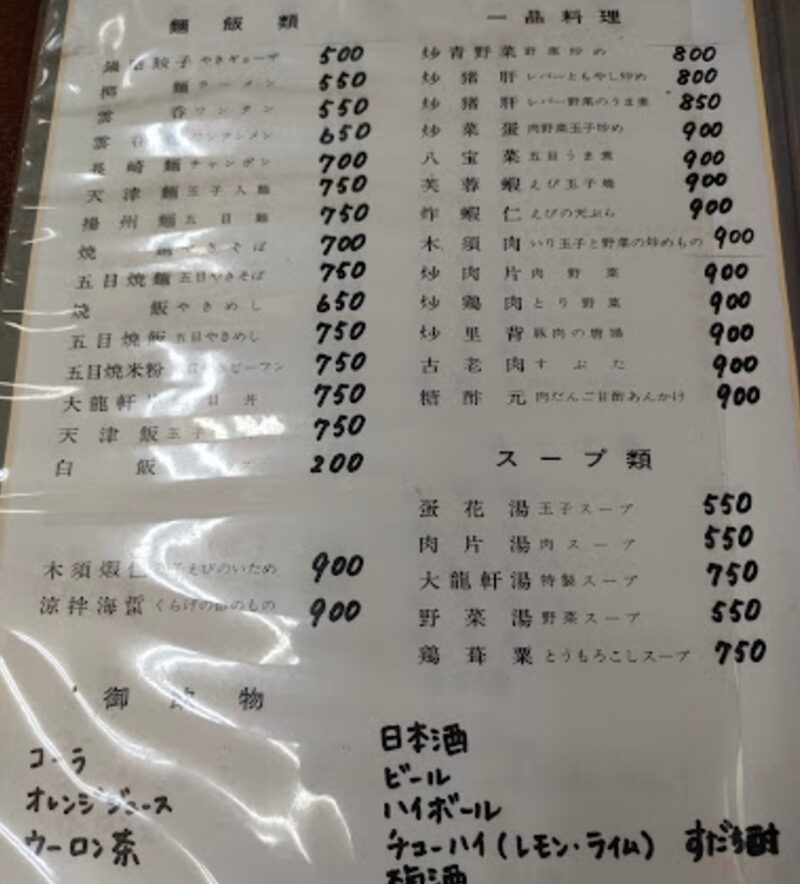 麺飯類
鍋 餃子 やきギョーザ 500
柳麺 ラーメン 550
雲呑 ワンタン 550
雲呑 ワンタンメン 650
長崎麺 チャンポン 700
天津麺 玉子入麺 750
揚州麺 五目麺 750
焼 やきそば 700
五目焼麺 五目やきそば 750
焼飯 やきめし 650
五目焼飯 五目やきめし 750
五目焼米粉 五目やきビーフン 750
大龍軒 目丼 750
天津飯 玉子 750
白飯 200
木須蝦仁 えびのいため 900
涼拌海蜇 くらげの酢のもの 900
一品料理
炒青野菜 野菜炒め 800
炒猪肝 レバーともやし炒め 800
炒猪肝 レバー野菜のうま煮 850
炒菜蛋 肉野菜玉子炒め 900
八宝菜 五目うま煮 900
芙蓉蝦 えび玉子焼 900
炸蝦仁 えびの天ぷら 900
木須肉 いり玉子と野菜の炒めもの 900
炒肉片 肉野菜 900
炒鶏肉 とり野菜 900
炒里背 豚肉の唐揚 900
古老肉 すぶた 900
糖酢元 肉だんご甘酢あんかけ 900
スープ類
蛋花湯 玉子スープ 550
肉片湯 肉スープ 550
大龍軒湯 特製スープ 750
野菜湯 野菜スープ 550
鶏茸粟 とうもろこしスープ 750
御 物
コーラ
オレンジジュース
ウーロン茶
日本酒
ビール
ハイボール
チューハイ(レモン・ライム) すだち酎
梅酒